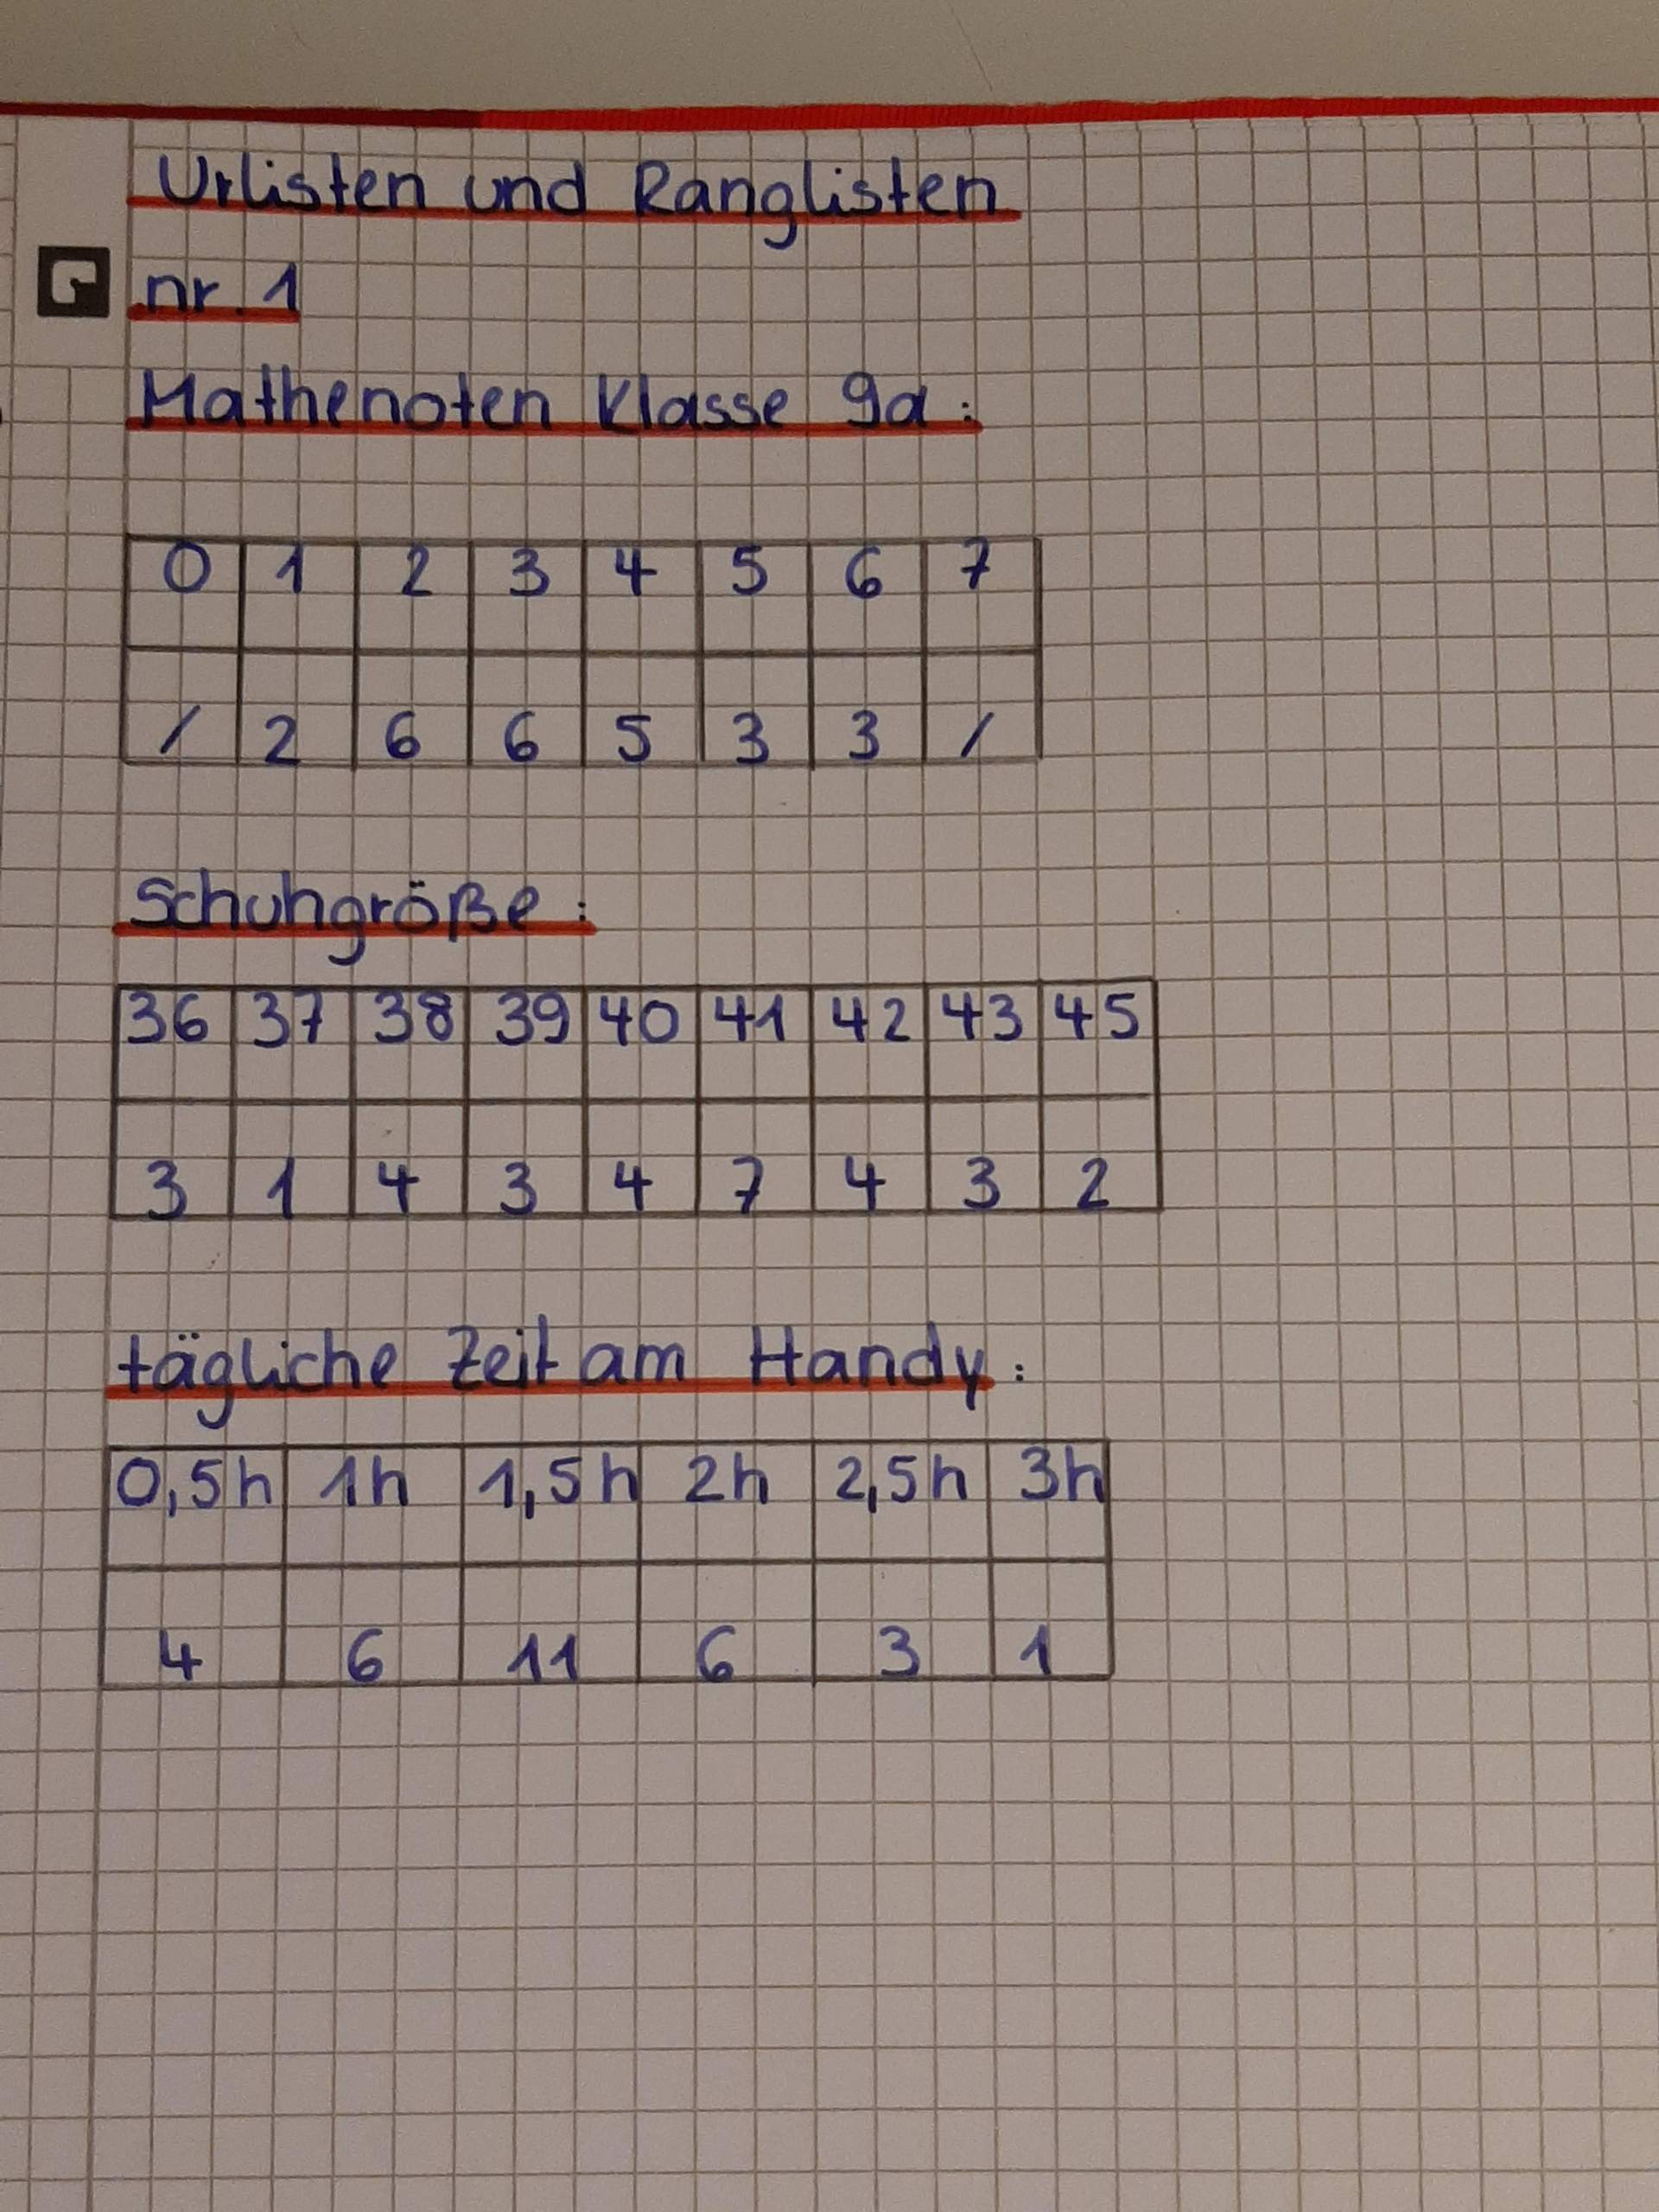 Urlisten und Ranglisten
nr. 1
Mathenoten Klasse 9a:
0 1 2 3 4 5 6 7
/ 2 6 6 5 3 3 /
Schuhgröße:
36 37 38 39 40 41 42 43 45
3 1 4 3 4 7 4 3 2
tägliche Zeit am Handy:
0,5h 1h 1,5h 2h 2,5h 3h
4 6 11 6 3 1